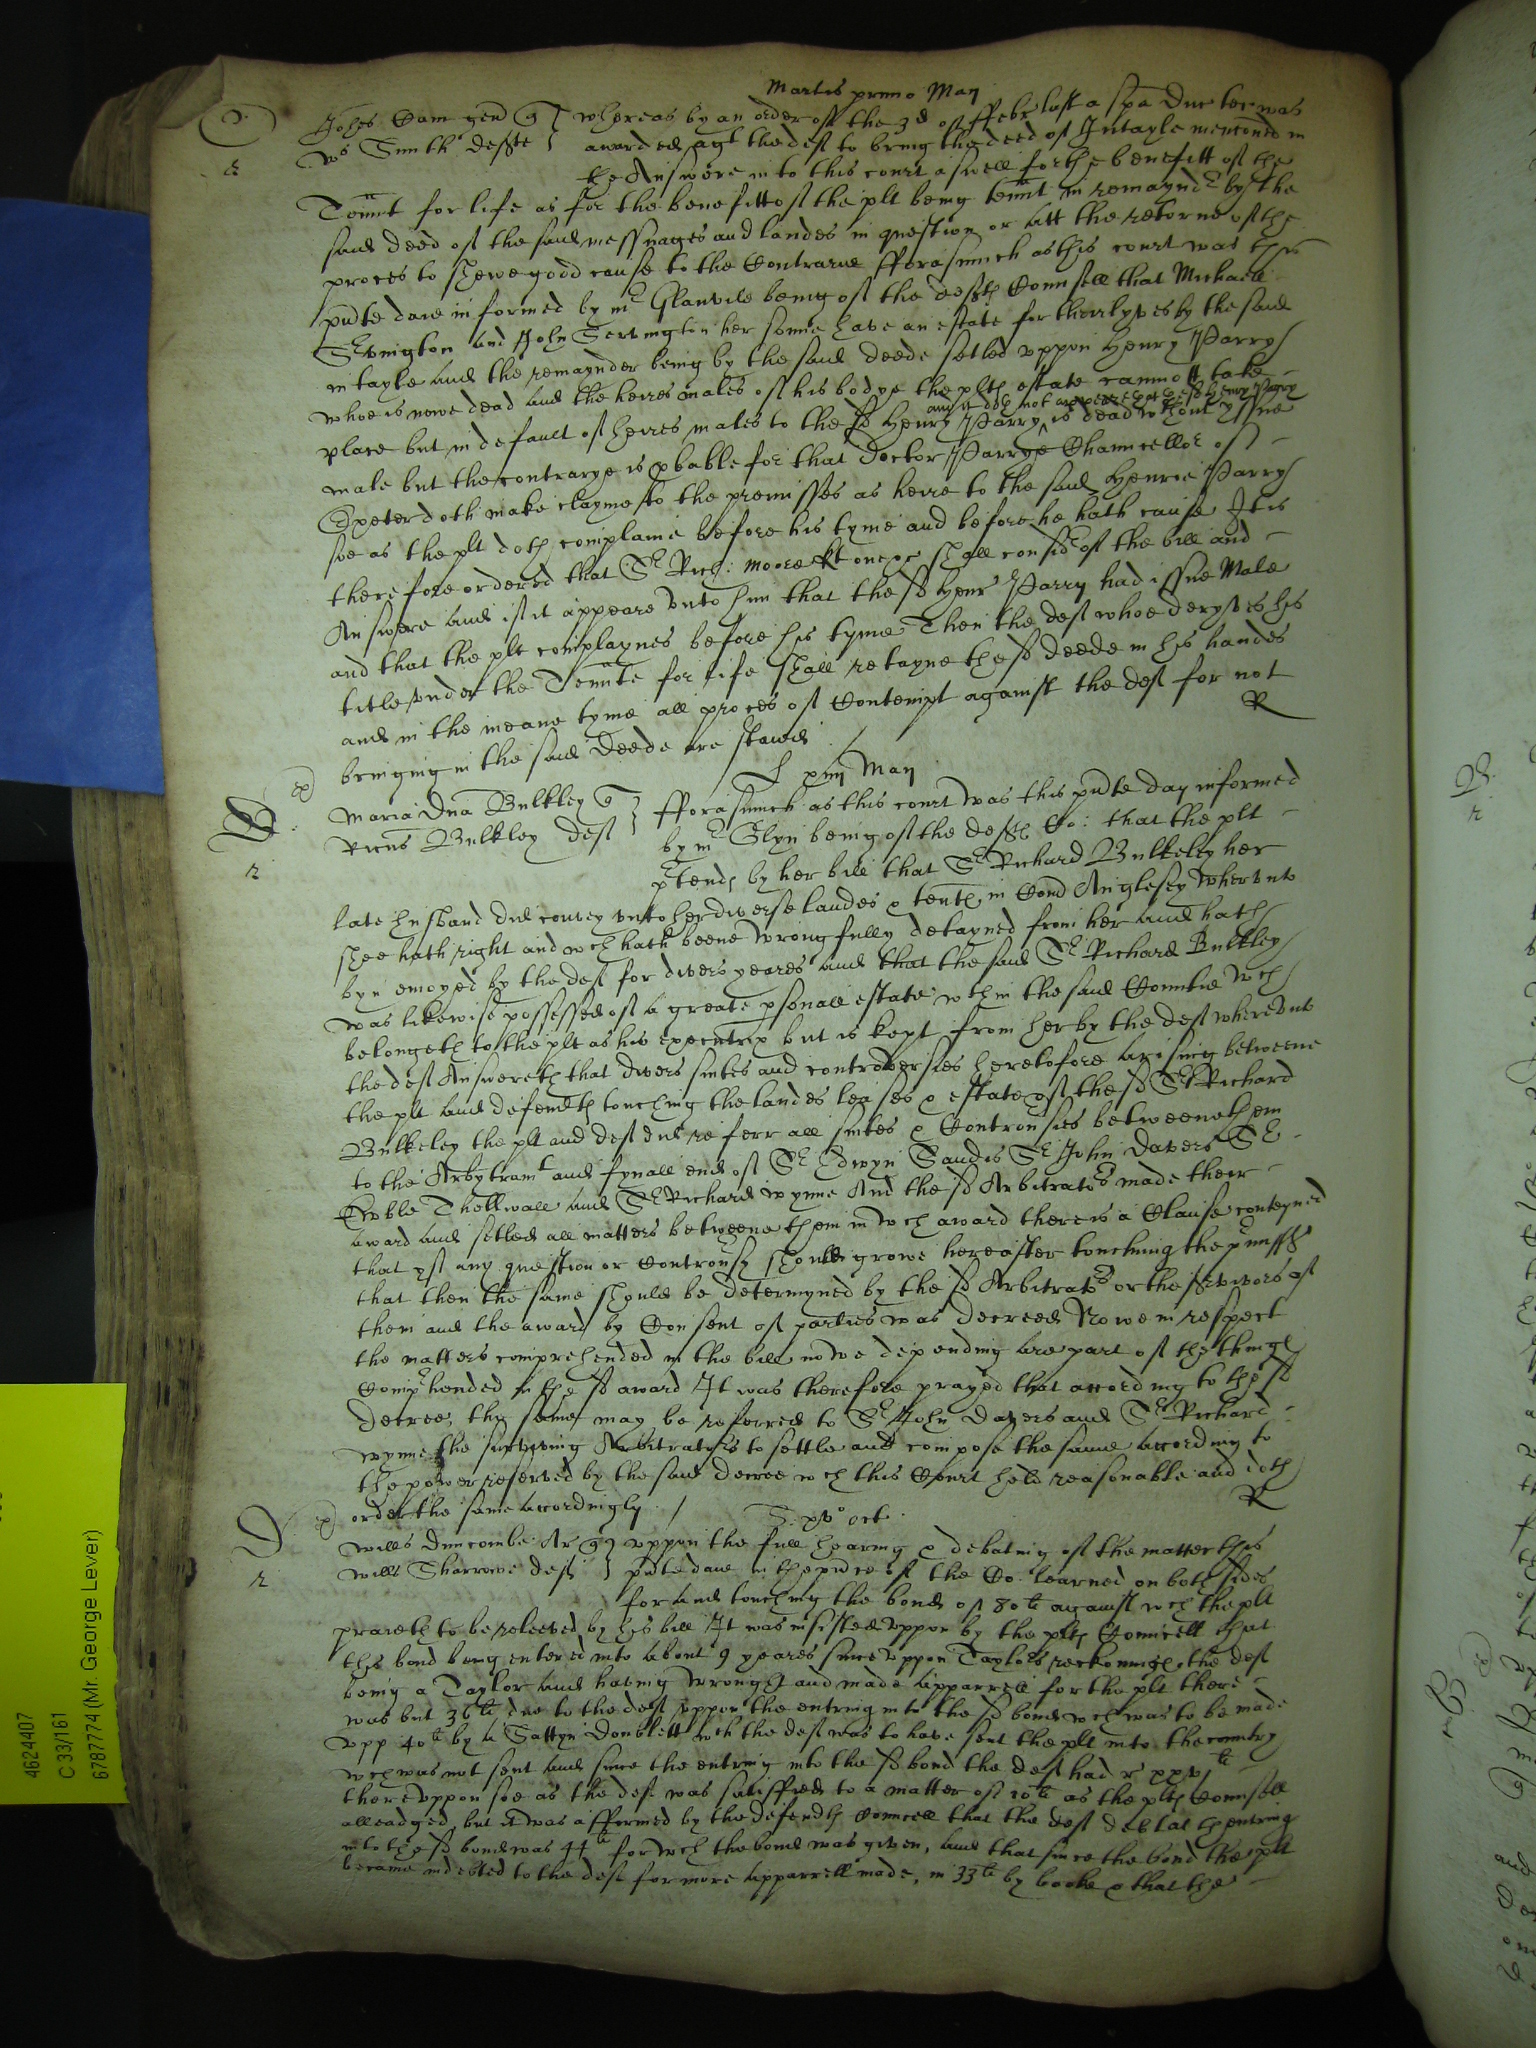 Martis primo Maij
Johes Came gen q whereas by an order of the 3d of ffebr last a spa Duc tec was
Ws Smith defte awarded agt the deft to bring the deed of Intayle mentioned in
the Answere in to this court aswell for the benefitt of the
Tennt for life as for the benefitt of the plt being tennt in remaynder by the
said deed of the said messuages and landes in question or att the retorne of the
proces to shewe good cause to the Contrarie fforasmuch as this court was this
pnte daie informed by mr Glanvile being of the defts Counsell that Michaell
Servington and John Servington her sonne have an estate for their lyves by the said
intayle and the remaynder being by the said deede setled vppon Henry Parry
whoe is nowe dead and the heires males of his bodye the plts estate cannott take
place but in default of heires males to the sd Henry Parry and it doth not appeare that the sd Henry Parry is dead without yssue
male but the contrarye is pbable for that Doctor Parrye Chauncellor of
Exeter doth make clayme to the premisses as heire to the said Henrie Parry
soe as the plt doth complaine before his tyme and before he hath cause It is
therefore ordered that Sr Rich: Moore kt one &c shall consider of the bill and
Answere and if it appeare vnto him that the sd Henr Parry had issue Male
and that the plt complaynes before his tyme Then the deft whoe deryves his
title vnder the Tennte for life shall retayne the sd deede in his handes
and in the meane tyme all proces of Contempt against the deft for not
bringing in the said deede are staied
R
xiiij Maij
Maria Dna Bulkley q fforasmuch as this court was this pnte day informed
Ricus Bulkley deft by mr Glyn being of the defts Co: that the plt
ptendes by her bill that Sr Richard Bulkeley her
late husband did convey vnto her diverse landes & tents in Com Anglesey wherevnto
shee hath right and wch hath beene wrongfully detayned from her and hath
byn enioyed by the deft for divers yeares and that the said Sr Richard Bulkley
was likewise possessed of a greate psonall estate wthin the said Countie wch
belongeth to the plt as his executrix but is kept from her by the deft wherevnto
the deft Answereth that divers suites and controversies heretofore arising betweene
the plt and defendt touching the landes leases & estate of the sd Sr Richard
Bulkeley the plt and deft did referr all suites & Controusies betweene them
to the Arbytramt and fynall end of Sr Edwyn Sandis Sr John Davers Sr
Eyble Thelwall and Sr Richard Wynne And the sd Arbitrators made their
award and setled all matters betweene them in wch award there is a Clause conteyned
that yf any question or Controusy should growe hereafter touching the pmisses
that then the same should be determyned by the sd Arbitrators or the survivors of
them and the award by Consent of parties was decreed Nowe in respect
the matters comprehended in the bill nowe depending are part of the things
Comphended in the sd award It was therefore prayed that according to the sd
decree, the same may be referred to Sr John Davers and Sr Richard
Wynne the surviving Arbitrators to settle and compose the same according to
the power reserved by the said decree wch this Court held reasonable and doth
order the same accordingly
R
S. xvo Oct
Wills Duncombe Ar q vppon the full hearing & debating of the matter this
Wills Sharrowe deft pnte daie in the pnce of the Co. learned on both sides
for and touching the bond of 80li against wch the plt
praieth to be releeved by his bill It was insisted vppon by the plts Councell that
this bond being entered into about 9 yeares since vppon Taylors reckonings, the deft
being a Taylor and having wrought and made apparrell for the plt there
was but 36li due to the deft vppon the entring into the sd bond wch was to be made
vpp 40li by a Sattyn doublett wch the deft was to have sent the plt into the country
wch was not sent and since the entring into the sd bond the deft had rd xxvjli
therevppon soe as the deft was satisfied to a matter of 10li as the plts Counsell
alleadged, but it was affirmed by the defendts Councell that the deft debt at thentring
into the sd bond was 44li for wch the bond was given, and that since the bond the plt
became indebted to the deft for more apparrell made, in 33li by booke & that the
4624407
C 33/161
6787774 (Mr. George Lever)